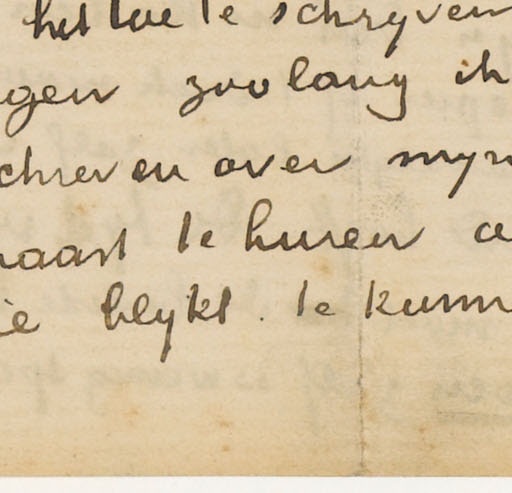 het toe te schryven
gen zoolang ik
chreven over myn
naast te huren o
ie blykt. te kunn